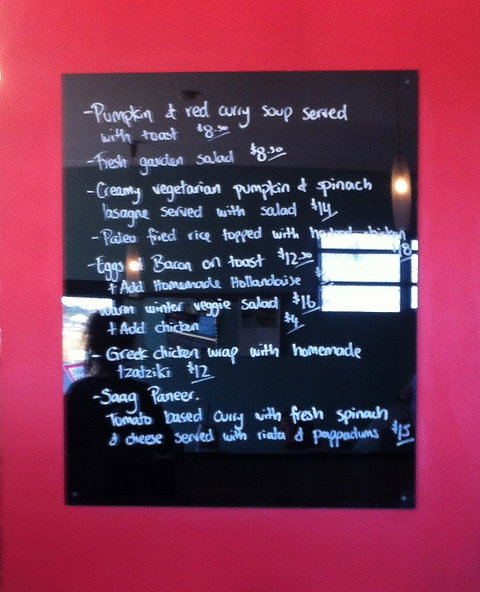 -Pumpkin & red curry soup served
with toast $8.50
-Fresh garden salad $8.50
-Creamy vegetarian pumpkin & spinach
lasagne served with salad $14
-Paleo fried rice topped with chicken
-Eggs & Bacon on toast $12.50
+ Add Homemade Hollandaise
Warm winter veggie salad $16
+ Add chicken $4
- Greek chicken wrap with homemade
tzatziki $12
-Saag Paneer.
Tomato based curry with fresh spinach
& cheese served with riata & pappadums $15